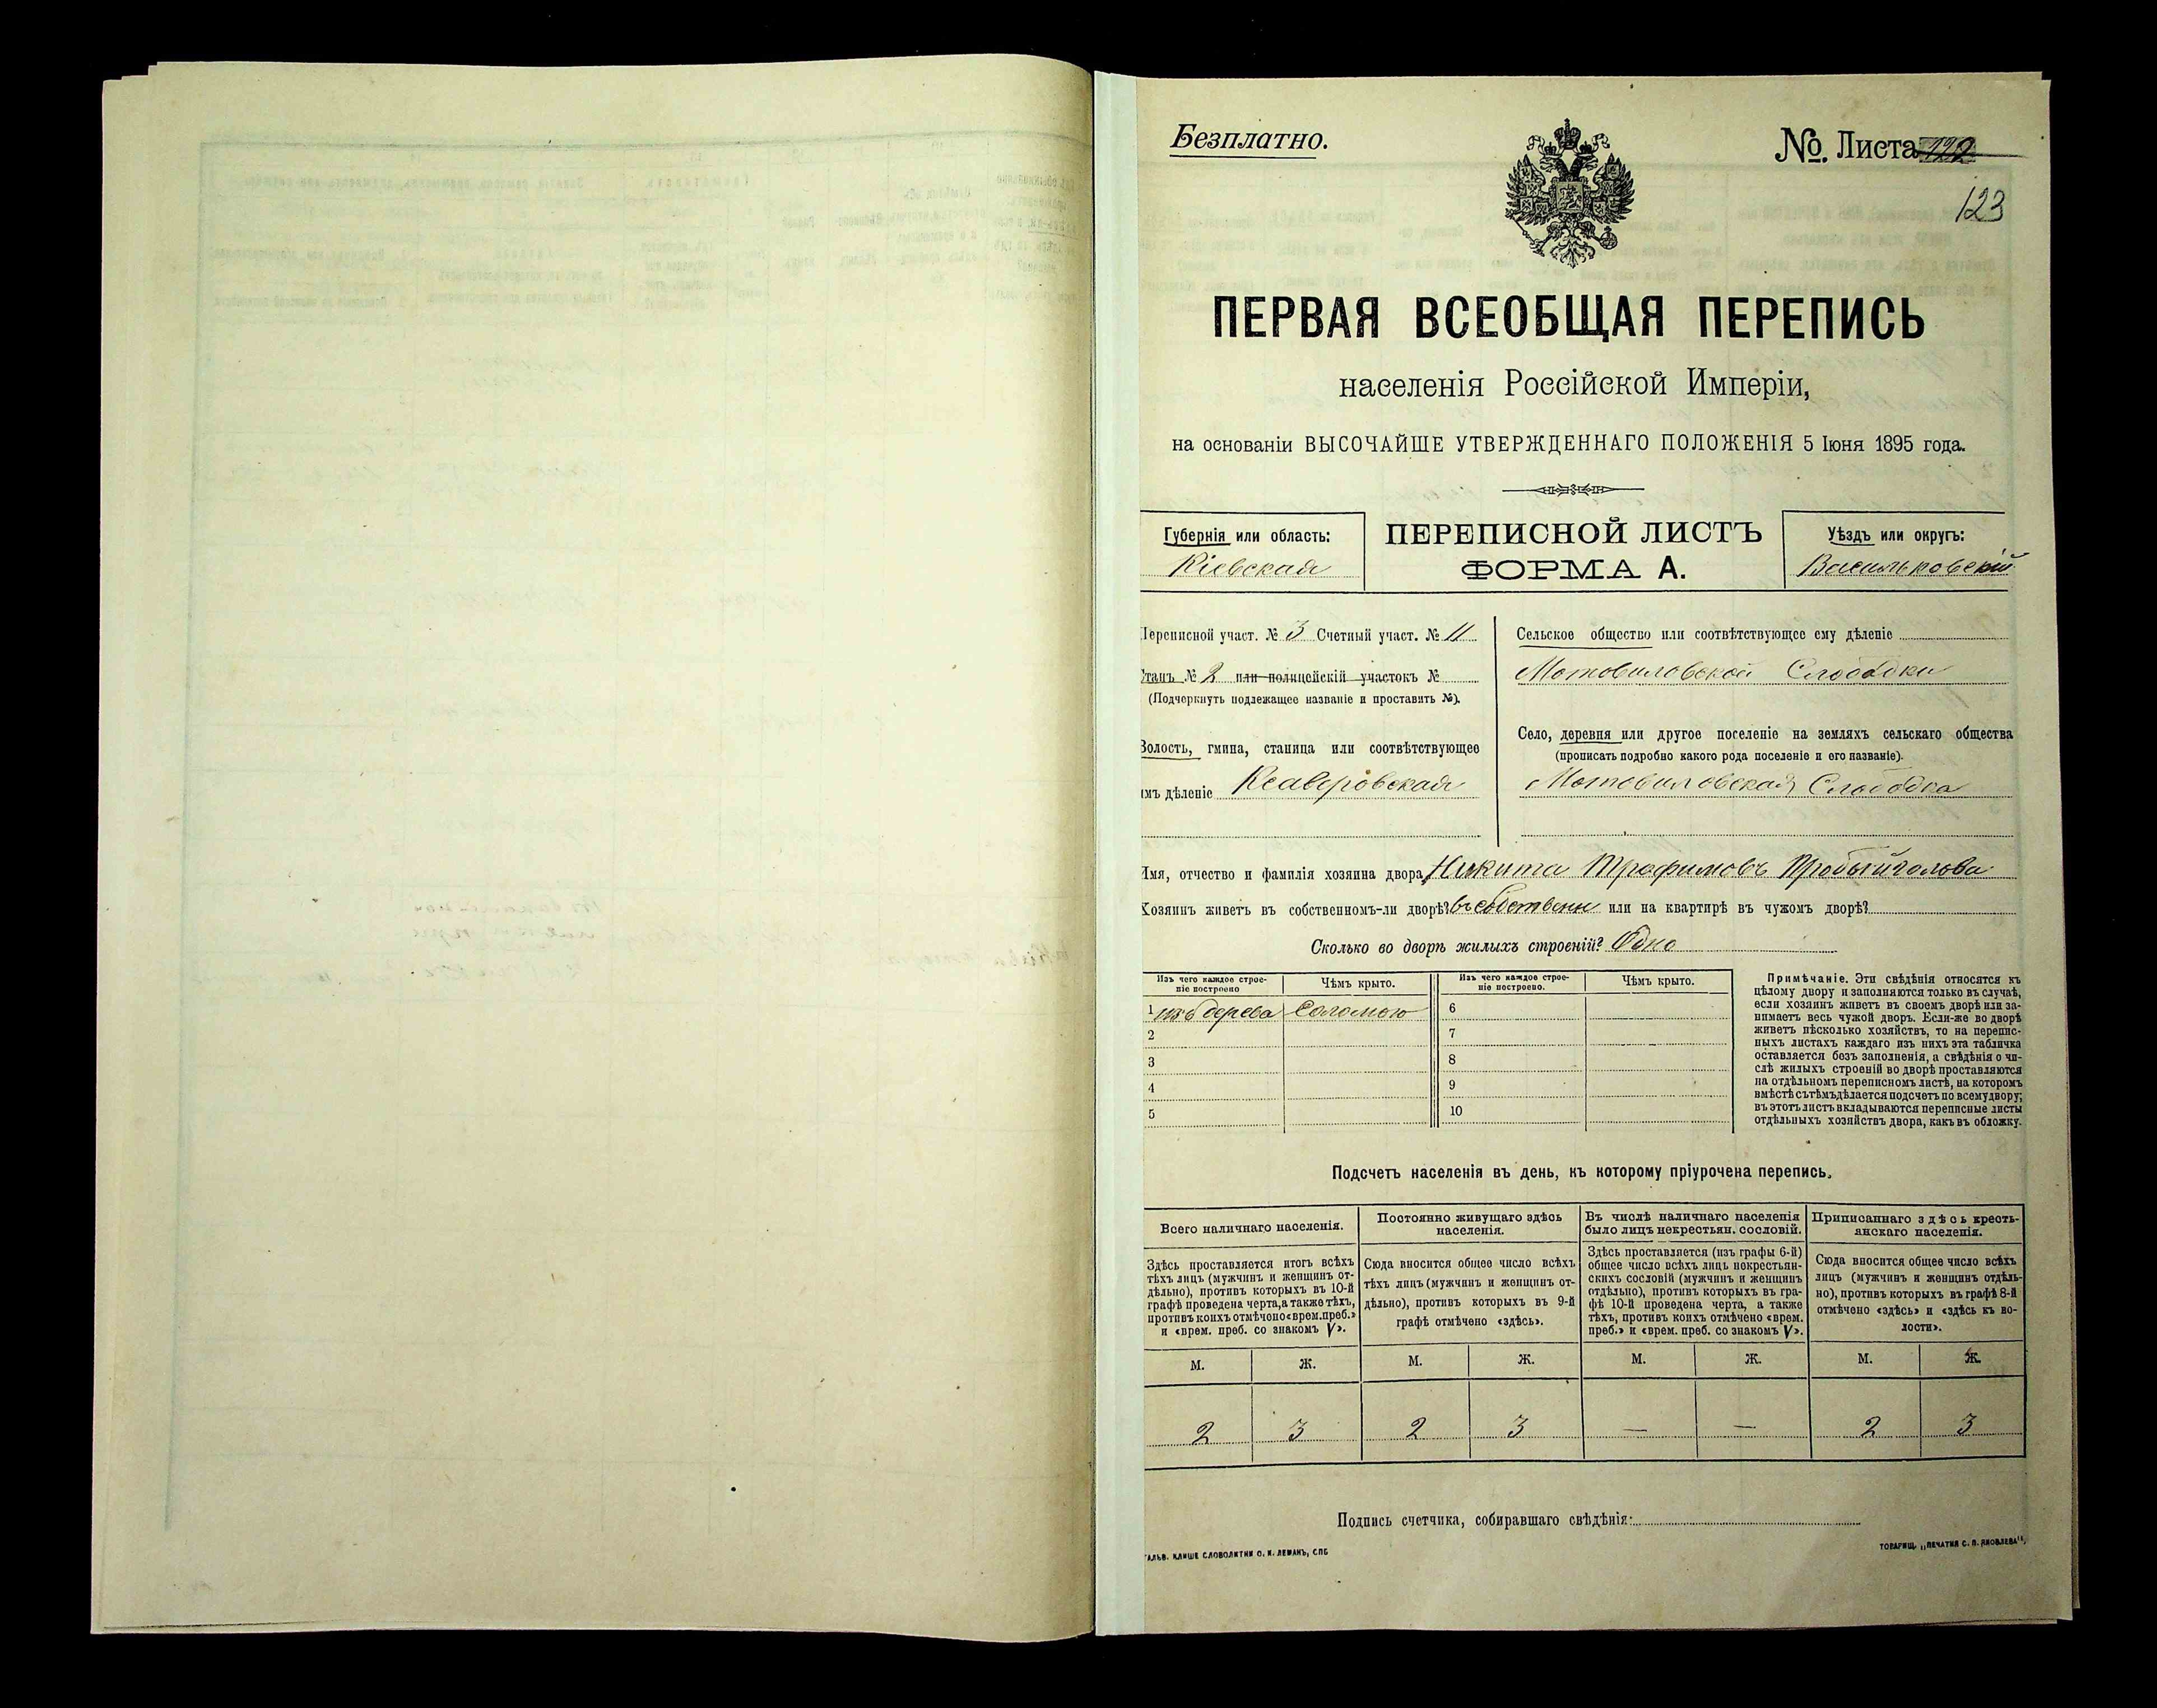 Безплатно.
№ Листа 122
123
ПЕРВАЯ ВСЕОБЩАЯ ПЕРЕПИСЬ
населенія Россійской Имперіи,
на основаніи ВЫСОЧАЙШЕ УТВЕРЖДЕННАГО ПОЛОЖЕНІЯ 5 Іюня 1895 года.
Губернія или область:
Кіевская
ПЕРЕПИСНОЙ ЛИСТЪ
ФОРМА А.
Уѣздъ или округъ:
Васильковскій
Переписной участ. № 3 Счетный участ. № 11
Станъ № 2 или полицейскій участокъ №
(Подчеркнуть подлежащее названіе и проставить №).
Волость, гмина, станица или соотвѣтствующее
имъ дѣленіе Ксаверовская
Сельское общество или соотвѣтствующее ему дѣленіе
Мотовиловской Слободки
Село, деревня или другое поселеніе на земляхъ сельскаго общества
(прописать подробно какого рода поселеніе и его названіе).
Мотовиловская Слободка
Имя, отчество и фамилія хозяина двора, Никита Трофимовъ Пробыйголова
Хозяинъ живетъ въ собственномъ-ли дворѣ? въ собствен или на квартирѣ въ чужомъ дворѣ?
Сколько во дворѣ жилыхъ строеній? Одно
Изъ чего каждое строе-
ніе построено
Чѣмъ крыто.
Изъ чего каждое строе-
ніе построено.
Чѣмъ крыто.
1 изъ дерева Соломою 6
2 7
3 8
4 9
5 10
Примѣчаніе. Эти свѣдѣнія относятся къ
цѣлому двору и заполняются только въ случаѣ,
если хозяинъ живетъ въ своемъ дворѣ или за-
нимаетъ весь чужой дворъ. Если-же во дворѣ
живетъ нѣсколько хозяйствъ, то на перепис-
ныхъ листахъ каждаго изъ нихъ эта табличка
оставляется безъ заполненія, а свѣдѣнія о чи-
слѣ жилыхъ строеній во дворѣ проставляются
на отдѣльномъ переписномъ листѣ, на которомъ
вмѣстѣ съ тѣмъ дѣлается подсчетъ по всему двору;
въ этотъ листъ вкладываются переписные листы
отдѣльныхъ хозяйствъ двора, какъ въ обложку.
Подсчетъ населенія въ день, къ которому пріурочена перепись.
Всего наличнаго населенія.
Постоянно живущаго здѣсь
населенія.
Въ числѣ наличнаго населенія
было лицъ некрестьян. сословій.
Приписаннаго здѣсь кресть-
янскаго населенія.
Здѣсь проставляется итогъ всѣхъ
тѣхъ лицъ (мужчинъ и женщинъ от-
дѣльно), противъ которыхъ въ 10-й
графѣ проведена черта, а также тѣхъ,
противъ коихъ отмѣчено «врем. преб.»
и «врем. преб. со знакомъ V».
Сюда вносится общее число всѣхъ
тѣхъ лицъ (мужчинъ и женщинъ от-
дѣльно), противъ которыхъ въ 9-й
графѣ отмѣчено «здѣсь».
Здѣсь проставляется (изъ графы 6-й)
общее число всѣхъ лицъ некрестьян-
скихъ сословій (мужчинъ и женщинъ
отдѣльно), противъ которыхъ въ гра-
фѣ 10-й проведена черта, а также
тѣхъ, противъ коихъ отмѣчено «врем.
преб.» и «врем. преб. со знакомъ V».
Сюда вносится общее число всѣхъ
лицъ (мужчинъ и женщинъ отдѣль-
но), противъ которыхъ въ графѣ 8-й
отмѣчено «здѣсь» и «здѣсь къ во-
лости».
М. Ж. М. Ж. М. Ж. М. Ж.
2 3 2 3 — — 2 3
Подпись счетчика, собиравшаго свѣдѣнія:
ГАЛЬВ. КЛИШЕ СЛОВОЛИТНИ О. И. ЛЕМАНЪ, СПБ
ТОВАРИЩ. „ПЕЧАТНЯ С. П. ЯКОВЛЕВА“.